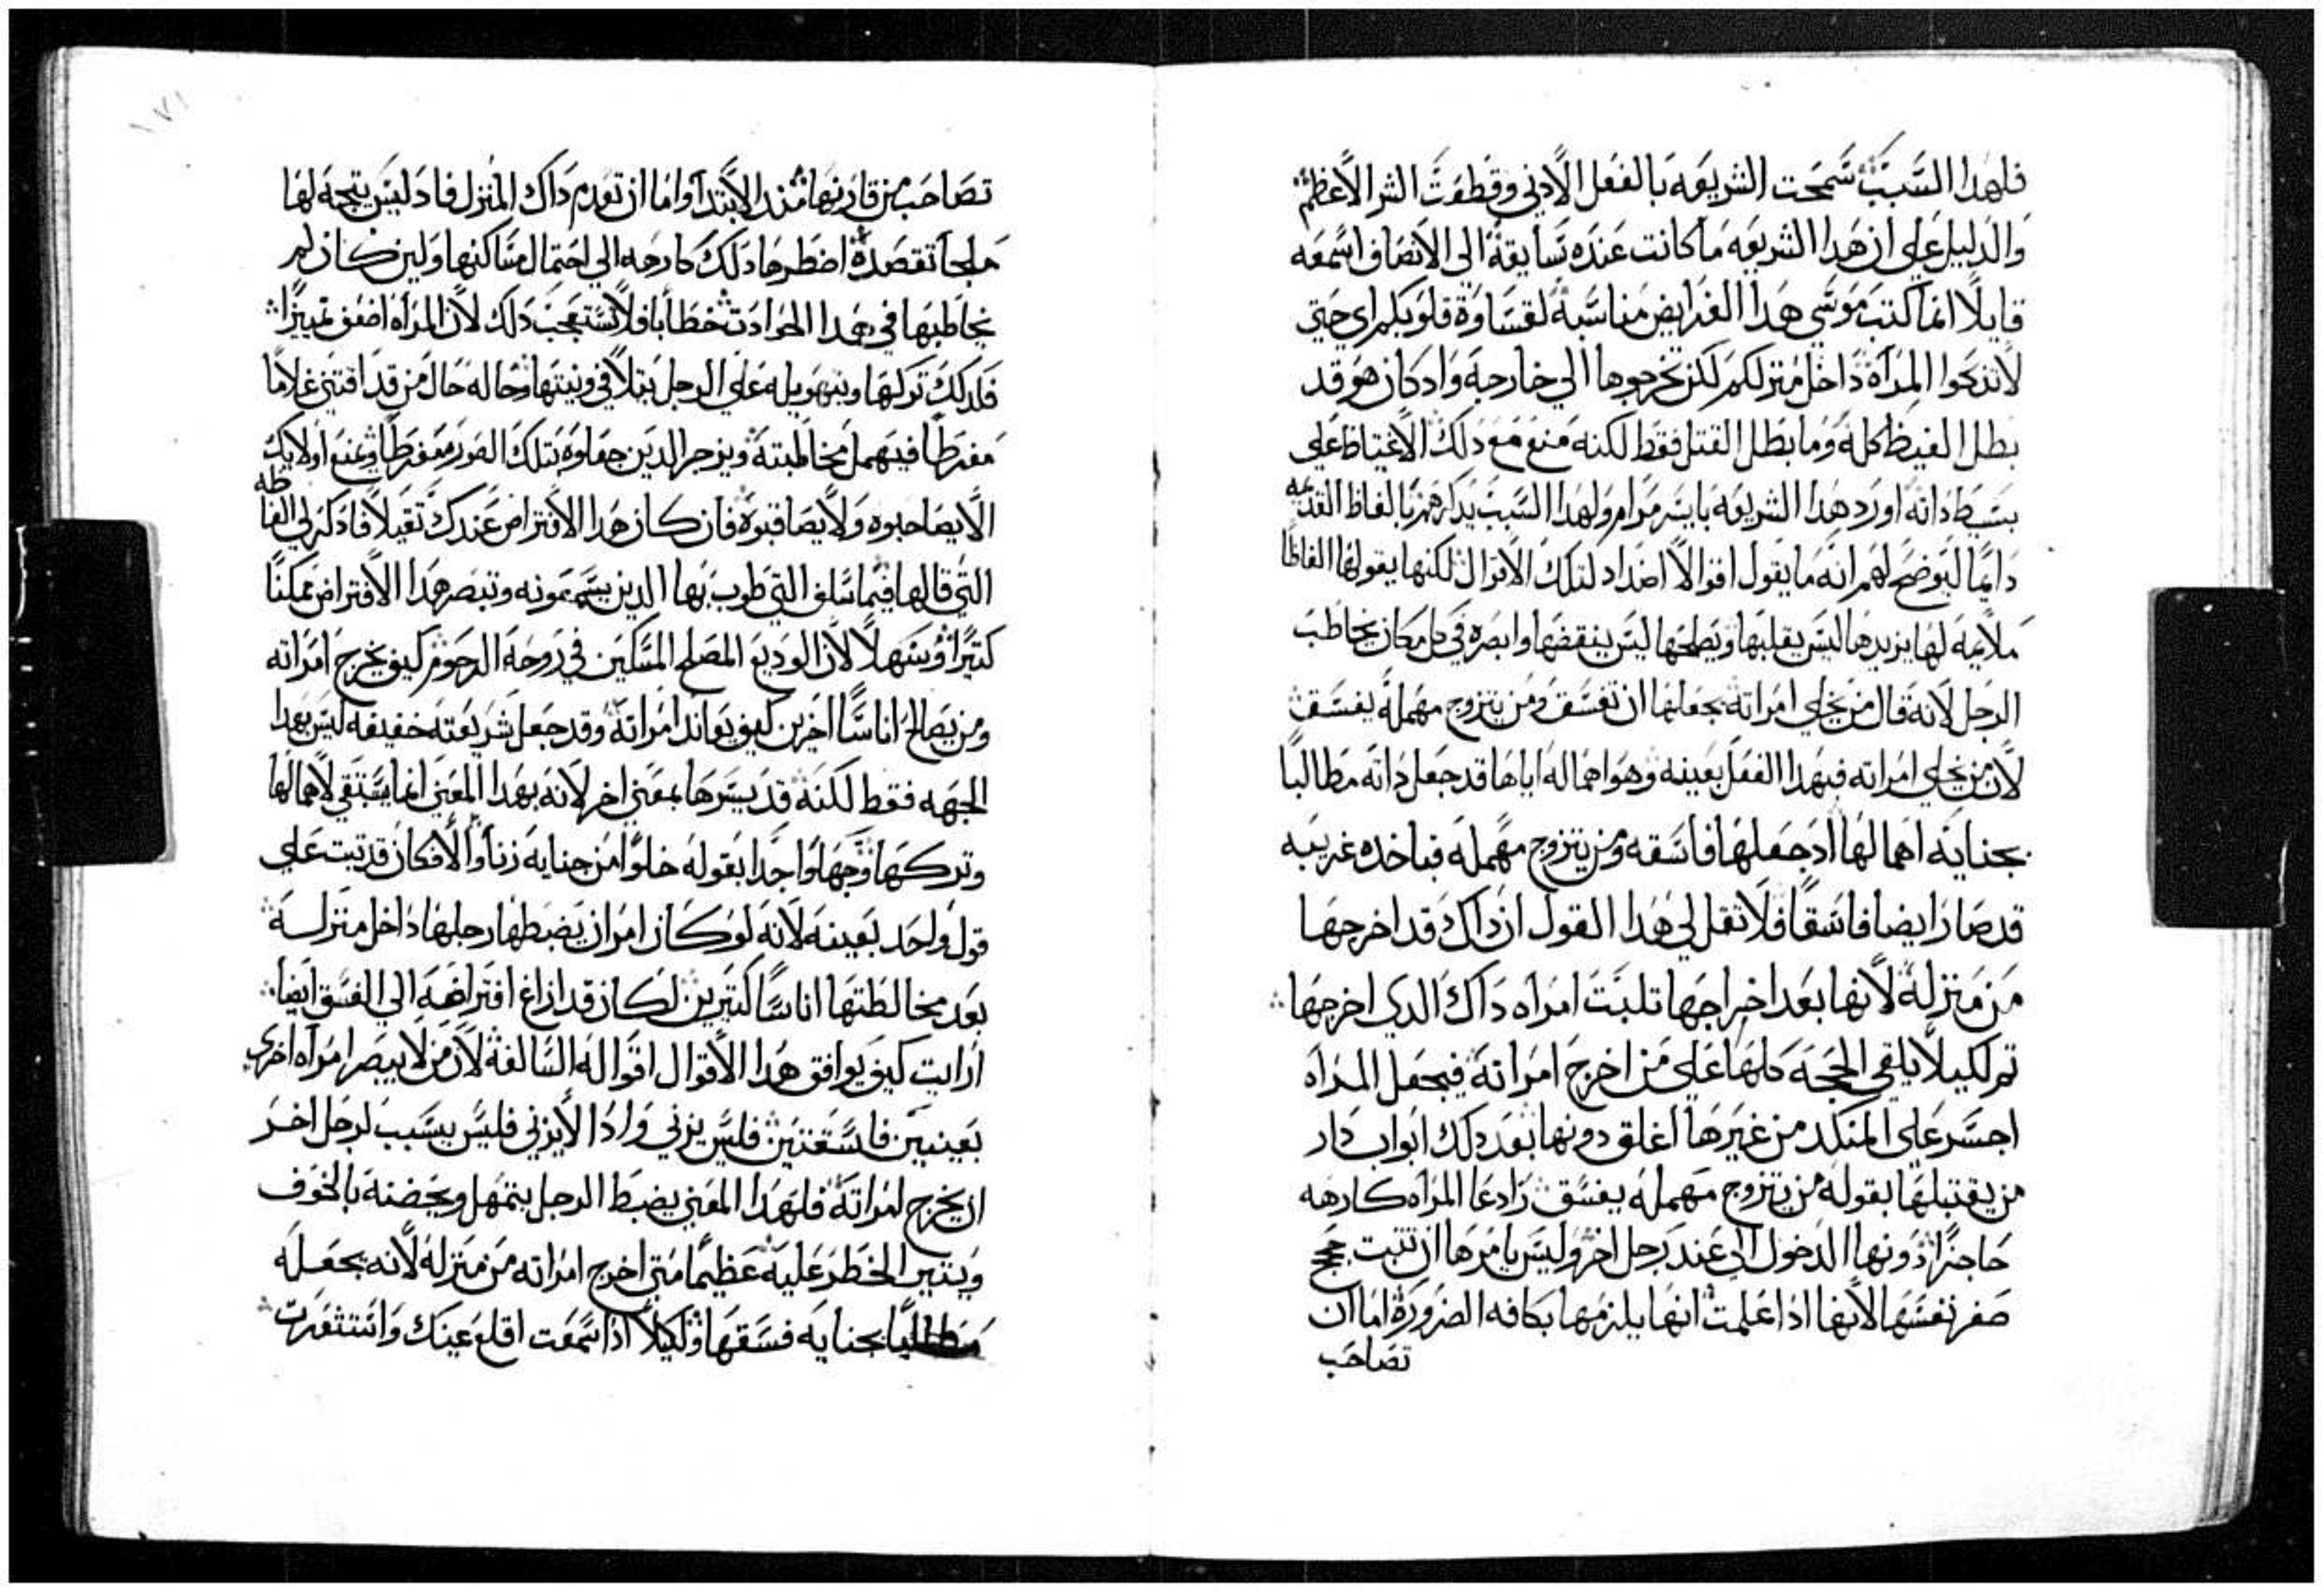 فلهدا السبب سمحت الشريعه بالفعل الادني وقطعت الشر الاعظم
والدليل علي ان هدا الشريعه ما كانت عنده تسابقة الي الانصاف اسمعه
قايلا انما كتب موسي هدا الفرايض مناسبة لقساوة قلوبكم اي حتي
لا تدبحوا المراة داخل منزلكم لكن تخرجوها الي خارجه واد كان هو قد
بطل الغيظ كله وما بطل القتل فقط لكنه منع مع دلك الاغتياظ علي
بسيط داته اورد هدا الشريعه بايسر مرام ولهدا السبب يدكرهم بالفاظ القديمه
دايما ليوضح لهم انه ما يقول اقوالا اضداد لتلك الاقوال لكنها يقولها الفاظا
ملايمه لها يزيدها ليس يقلبها ويصلحها ليس ينقضها وابصره في كل مكان يخاطب
الرجل لانه قال من يخلي امراته يجعلها ان تفسق ومن يتزوج مهملة يفسق
لان من يخلي امراته فبهدا الفعل بعينه وهو اهماله اياها قد جعل داته مطالبا
بجناية اهمالها اد جعلها فاسقه ومن يتزوج مهملة فباخده غريبه
قد صار ايضا فاسقا فلا تقل لي هدا القول ان داك قد اخرجها
من منزله لانها بعد اخراجها تلبت امراه داك الدي اخرجها
تم لكيلا يلقي الحجة كلها علي من اخرج امراته فيجعل المراه
اجسر علي المنكد من غيرها اغلق دونها بعد دلك ابواب دار
من يقتبلها بقوله من يتزوج مهمله يفسق رادعا المراه كارهه
حاجزا دونها الدخول الي عند رجل اخر وليس يامرها ان تتبت حجج
صغر نفسها لانها ادا علمت انها يلزمها بكافه الضرورة اما ان
تصاحب
١٧١
تصاحب من قارنها مند الابتدا واما ان تعدم داك المنزل فاد ليس يتجه لها
ملجا تقصده اضطرها دلك كارهه الي احتمال مساكنها ولين كان لم
يخاطبها في هدا الحوادت خطابا فلا تستعجب دلك لان المراه اضعف تمييزا
فلدلك تركها وبتهويله علي الرجل يتلافي ونيتها وحاله حال من قد اقتني غلاما
مفرطا فيهمل مخاطبته ويزجر الدين جعلوه بتلك الصور مفرطا ويمنع اولايك
الا يصاحبوه ولا يصاقبوه فان كان هدا الافتراض عندك تقيلا فادكر لي الفاظه
التي قالها فيما سلف التي طوب بها الدين يسمعونه وتبصر هدا الافتراض ممكنا
كتيرا وسهلا لان الوديع المصلح المسكين في روحه الرحوم كيف يخرج امراته
ومن يصالح اناسا اخرين كيف يعاند امراته وقد جعل شريعته خفيفه ليس بهدا
الجهه فقط لكنه قد يسرها بمعني اخر لانه بهدا المعني انما يستبقي لاهمالها
وتركها وجها واحدا بقوله خلوا من جنايه زنا والا فكان قد تبت علي
قول واحد بعينه لانه لو كان امر ان يضبطها رجلها داخل منزله
بعد مخالطتها اناسا كتيرين لكان قد ازاغ افتراضه الي الفسق ايضا
ارايت كيف يوافق هدا الاقوال اقواله السالفة لان من لا يبصر امراه اخري
بعينين فاسقتين فليس يزني وادا لا يزني فليس يسبب لرجل اخر
ان يخرج امراته فلهدا المعني يضبط الرجل بتمهل ويحضنه بالخوف
ويتبين الخطر عليه عظيما متي اخرج امراته من منزله لانه يجعله
مطالبا بجنايه فسقها ولكيلا ادا سمعت اقلع عينك واستشعرت